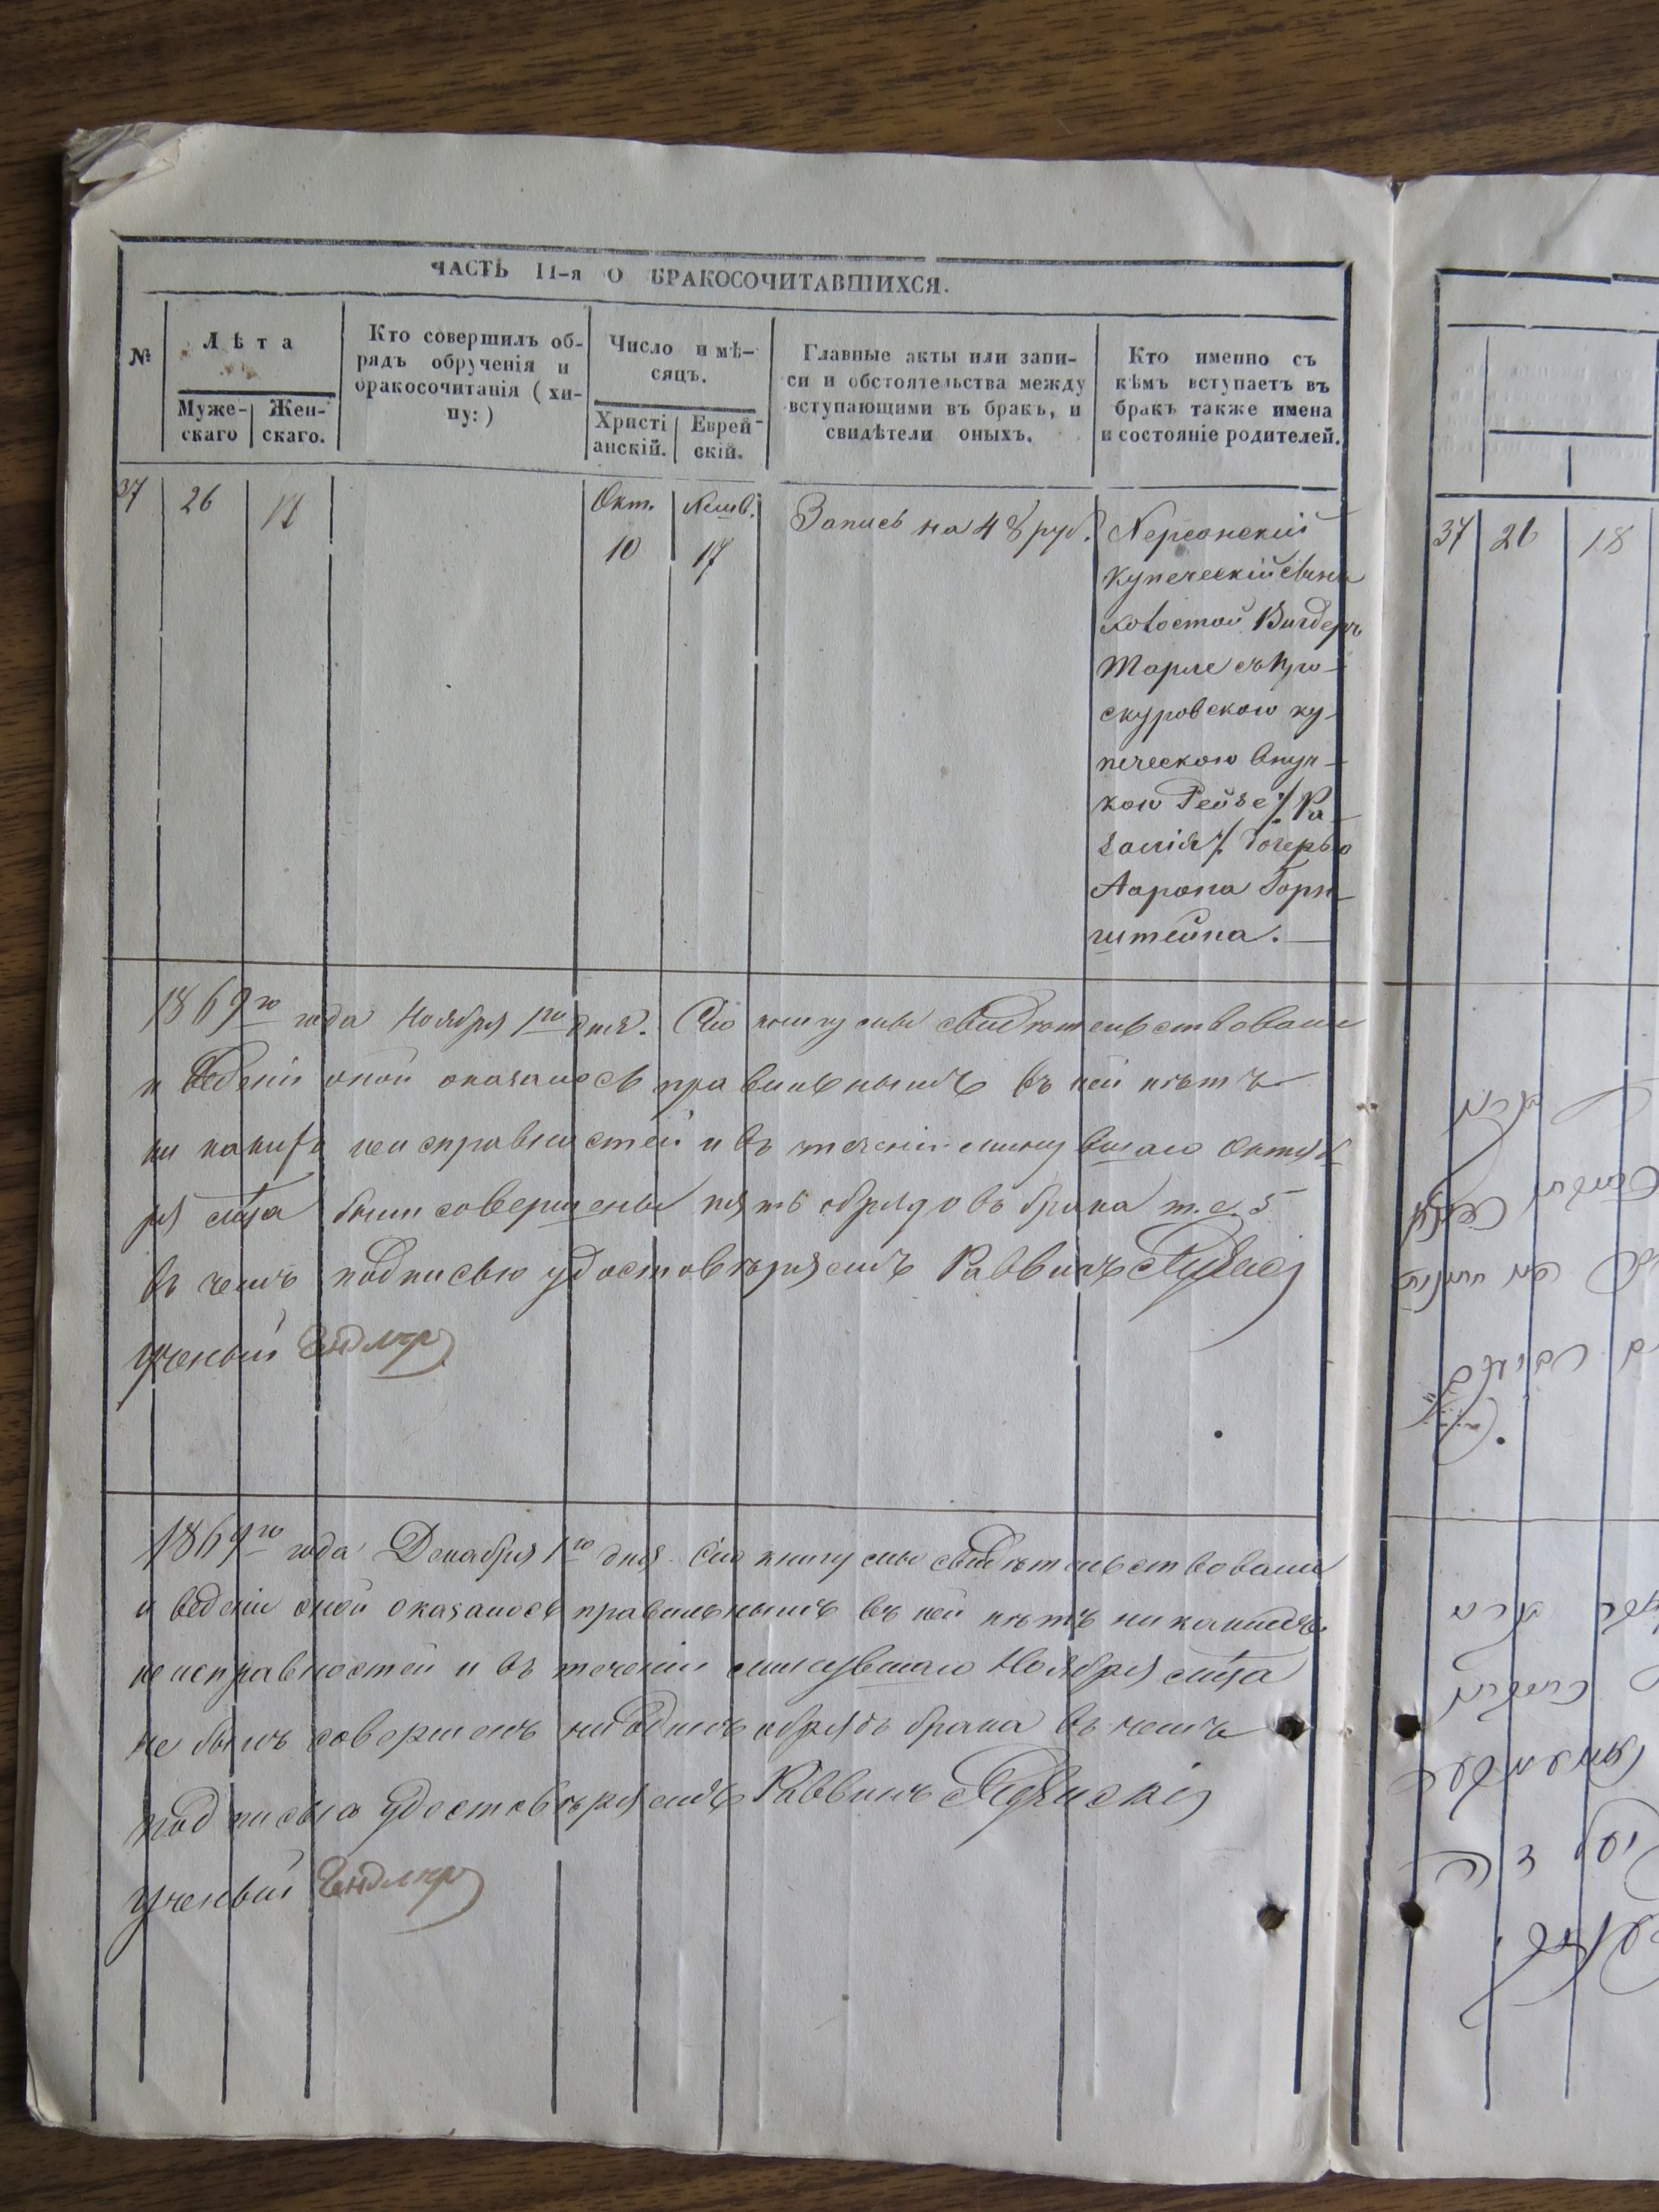 ЧАСТЬ II-я О БРАКОСОЧИТАВШИХСЯ.
№
Лѣта
Муже-
скаго
Жен-
скаго.
Кто совершилъ об-
рядъ обрученія и
бракосочитанія (хи-
пу:)
Число и мѣ-
сяцъ.
Христі
анскій.
Еврей-
скій.
Главные акты или запи-
си и обстоятельства между
вступающими въ бракъ, и
свидѣтели оныхъ.
Кто именно съ
кѣмъ вступаетъ въ
бракъ также имена
и состояніе родителей.
37
26
Окт.
10
17
Запись на 48 руб.
Херсонскій
купеческій сынъ
холостой Вигдеръ
Тарле съ Про-
скуровскою ку-
печескою внуч-
кою Рейзе ./. Ро
заліи ./. дочерью
Аарона Горн-
штейна.
1869го года Ноября 1го дня. Сію книгу мы свидѣтельствовали
и веденіе оной оказалось правильнымъ въ ней нѣтъ
ни какихъ неисправностей и въ теченіи минувшаго Октяб
ря м͠ца были совершены пять обрядовъ брака т.е. 5
въ чемъ подписью удостовѣряемъ Раввинъ
Ученый
1869го года Декабря 1го дня. Сію книгу мы свидѣтельствовали
и веденіе оной оказалось правильнымъ въ ней нѣтъ никакихъ
неисправностей и въ теченіи минувшаго Ноября м͠ца
не былъ совершенъ ни одинъ обрядъ брака въ чемъ
подписью удостовѣряемъ Раввинъ
Ученый
37
18